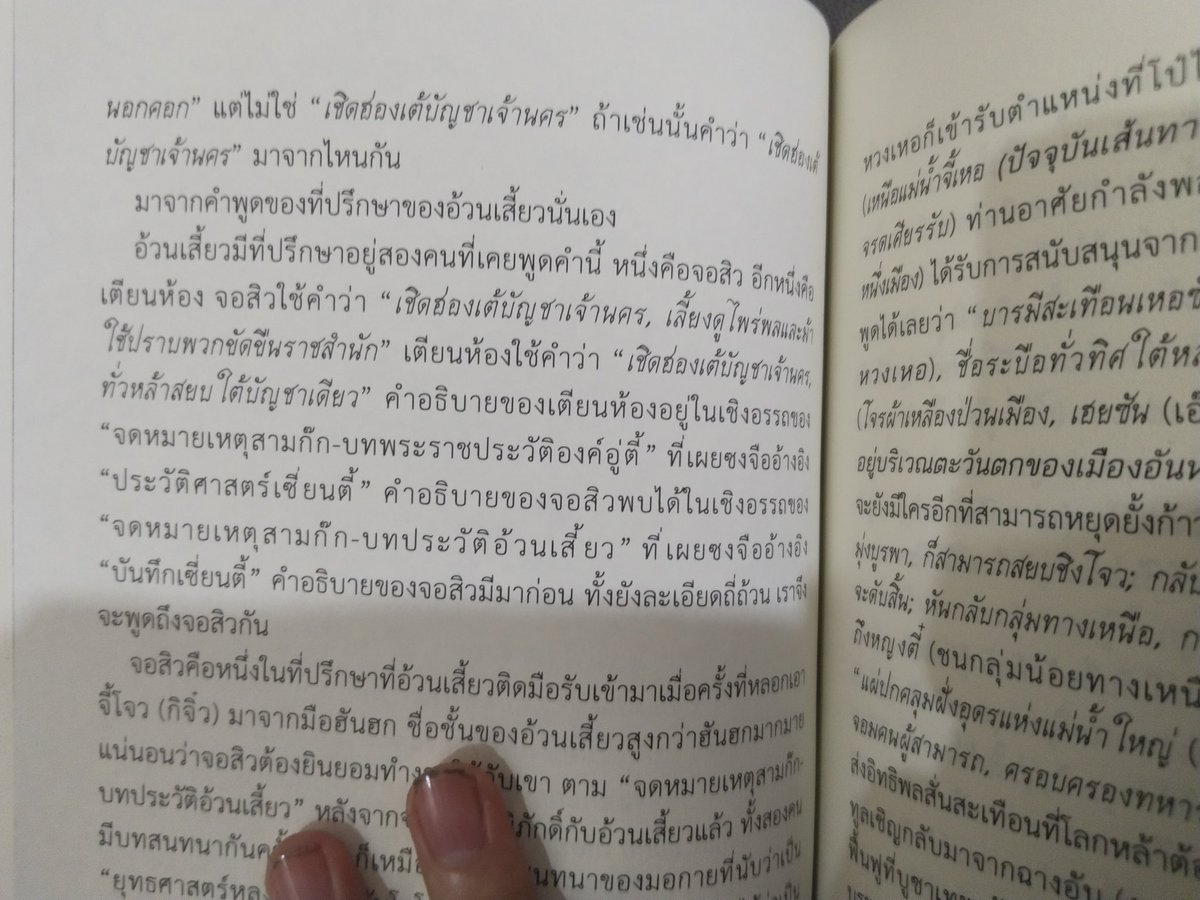 นอกคอก” แต่ไม่ใช่ “เชิดฮองเต้บัญชาเจ้านคร” ถ้าเช่นนั้นคำว่า “เชิดฮองเต้
บัญชาเจ้านคร” มาจากไหนกัน
มาจากคำพูดของที่ปรึกษาของอ้วนเสี้ยวนั่นเอง
อ้วนเสี้ยวมีที่ปรึกษาอยู่สองคนที่เคยพูดคำนี้ หนึ่งคือจอสิว อีกหนึ่งคือ
เตียนห้อง จอสิวใช้คำว่า “เชิดฮองเต้บัญชาเจ้านคร, เลี้ยงดูไพร่พลและม้า
ใช้ปราบพวกขัดขืนราชสำนัก” เตียนห้องใช้คำว่า “เชิดฮองเต้บัญชาเจ้านคร,
ทั่วหล้าสยบใต้บัญชาเดียว” คำอธิบายของเตียนห้องอยู่ในเชิงอรรถของ
“จดหมายเหตุสามก๊ก-บทพระราชประวัติองค์อู่ตี้” ที่เผยซงจืออ้างอิง
“ประวัติศาสตร์เซี่ยนตี้” คำอธิบายของจอสิวพบได้ในเชิงอรรถของ
“จดหมายเหตุสามก๊ก-บทประวัติอ้วนเสี้ยว” ที่เผยซงจืออ้างอิง
“บันทึกเซี่ยนตี้” คำอธิบายของจอสิวมีมาก่อน ทั้งยังละเอียดถี่ถ้วน เราจึง
จะพูดถึงจอสิวกัน
จอสิวคือหนึ่งในที่ปรึกษาที่อ้วนเสี้ยวติดมือรับเข้ามาเมื่อครั้งที่หลอกเอา
จี้โจว (กิจิ๋ว) มาจากมือฮันฮก ชื่อชั้นของอ้วนเสี้ยวสูงกว่าฮันฮกมากมาย
แน่นอนว่าจอสิวต้องยินยอมทำงาน เขา ตาม “จดหมายเหตุสามก๊ก-
บทประวัติอ้วนเสี้ยว” หลังจาก ภักดิ์กับอ้วนเสี้ยวแล้ว ทั้งสองคน
มีบทสนทนากัน ก็เหมือ นทนาของมอกายที่นับว่าเป็น
“ยุทธศาสตร์
หวงเหอก็เข้ารับตำแหน่งที่โป๋ไ
(เหนือแม่น้ำจี้เหอ (ปัจจุบันเส้นทา
จรดเศียรรับ) ท่านอาศัยกำลังพล
หนึ่งเมือง) ได้รับการสนับสนุนจาก
พูดได้เลยว่า “บารมีสะเทือนเหอซ
หวงเหอ), ชื่อระบือทั่วทิศ ใต้หล
(โจรผ้าเหลืองป่วนเมือง, เฮยซัน (เอ็
อยู่บริเวณตะวันตกของเมืองอันห
จะยังมีใครอีกที่สามารถหยุดยั้งก้าว
มุ่งบูรพา, ก็สามารถสยบชิงโจว; กลับ
จะดับสิ้น; หันกลับกลุ่มทางเหนือ, ก
ถึงหญงตี๋ (ชนกลุ่มน้อยทางเหนื
“แผ่ปกคลุมฝั่งอุดรแห่งแม่น้ำใหญ่ (
จอมคนผู้สามารถ, ครอบครองทหาร
ส่งอิทธิพลสั่นสะเทือนที่โลกหล้าต้อ
ทูลเชิญกลับมาจากฉางอัน (
ฟื้นฟูที่บูชาเทพ